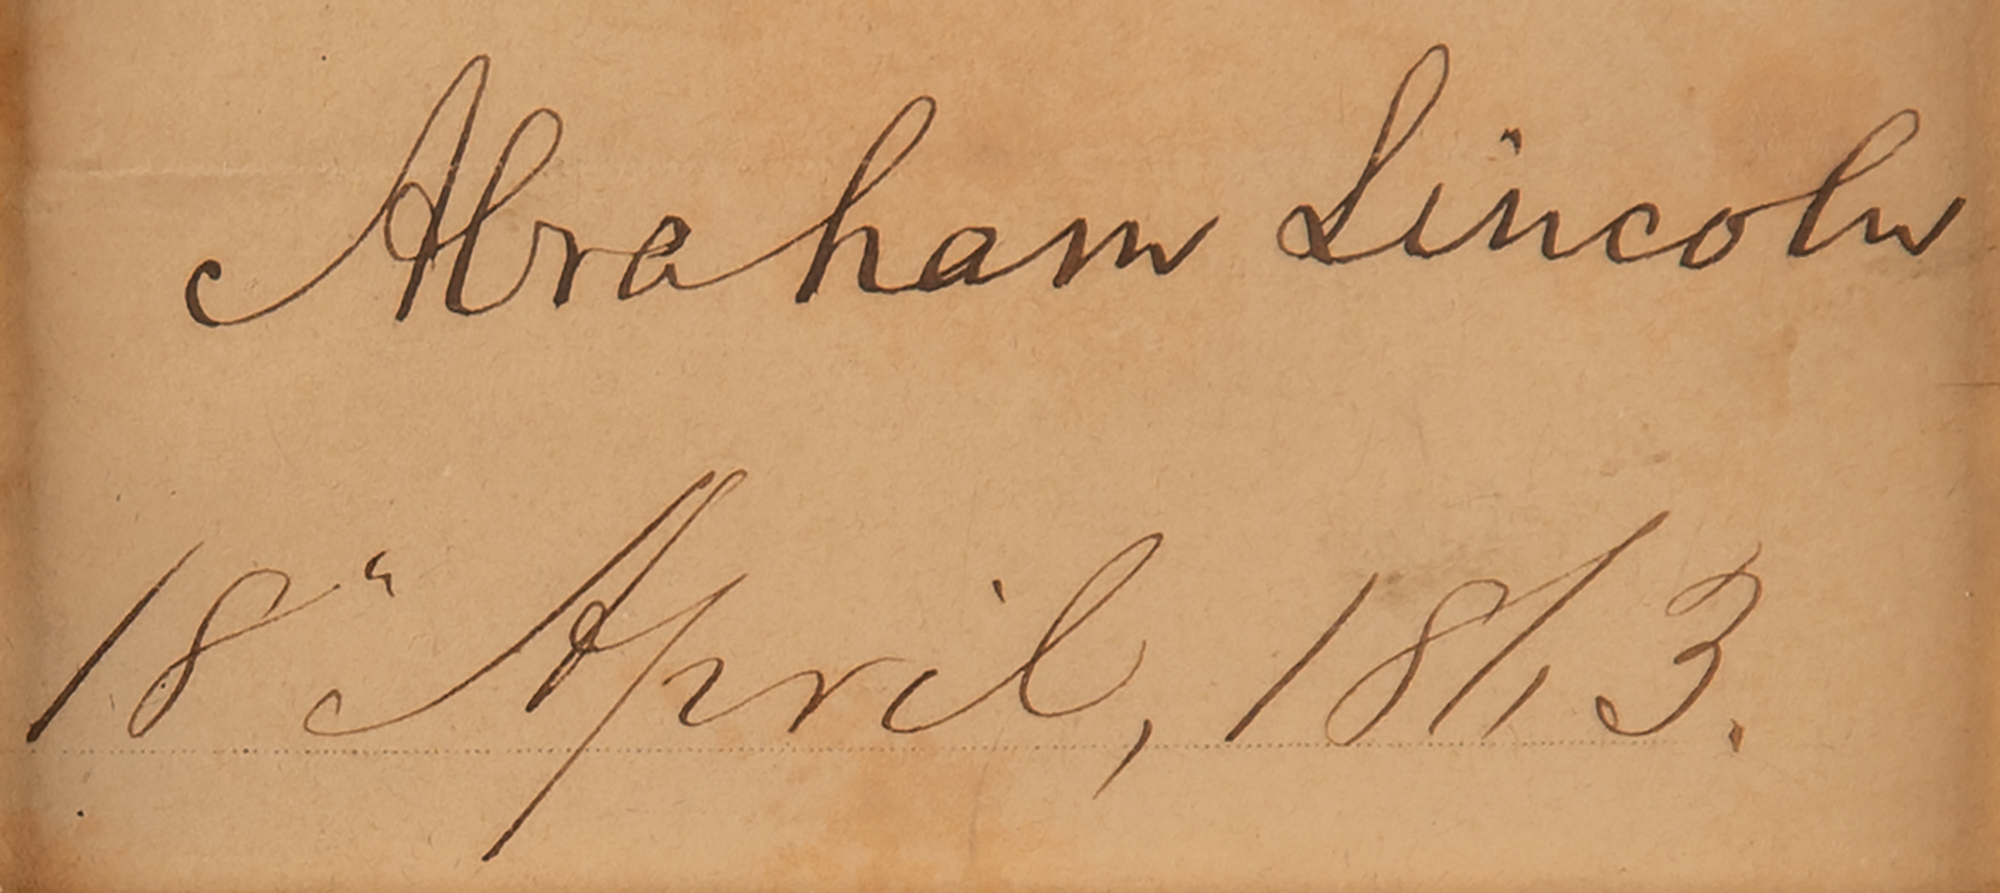 Abraham Lincoln
18" April, 1863.